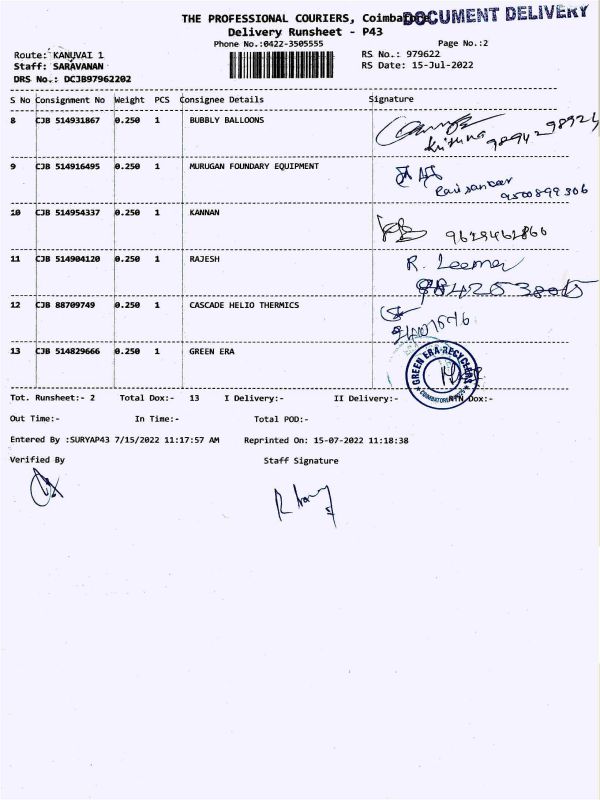 THE PROFESSIONAL COURIERS, Coimbatore
DOCUMENT DELIVERY
Delivery Runsheet - P43
Phone No.:0422-3505555
Page No.:2
Route: KANUVAI 1
RS No.: 979622
Staff: SARAVANAN
RS Date: 15-Jul-2022
DRS No.: DCJB97962202
S No Consignment No Weight PCS Consignee Details Signature
8 CJB 514931867 0.250 1 BUBBLY BALLOONS
Krishna
9 CJB 514916495 0.250 1 MURUGAN FOUNDARY EQUIPMENT
9500899306
10 CJB 514954337 0.250 1 KANNAN
9629462866
11 CJB 514904120 0.250 1 RAJESH
R.
12 CJB 88709749 0.250 1 CASCADE HELIO THERMICS
13 CJB 514829666 0.250 1 GREEN ERA
GREEN ERA RECYCLERS
COIMBATORE
Tot. Runsheet:- 2 Total Dox:- 13 I Delivery:- II Delivery:- RTN Dox:-
Out Time:- In Time:- Total POD:-
Entered By :SURYAP43 7/15/2022 11:17:57 AM Reprinted On: 15-07-2022 11:18:38
Verified By Staff Signature